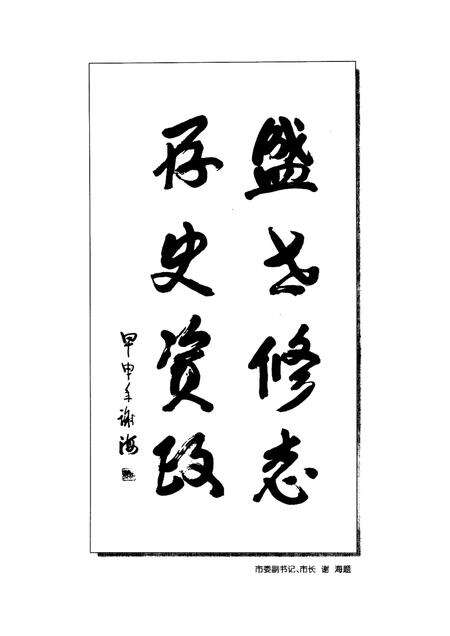 盛世修志
存史资政
甲申年谢海
市委副书记、市长 谢 海题